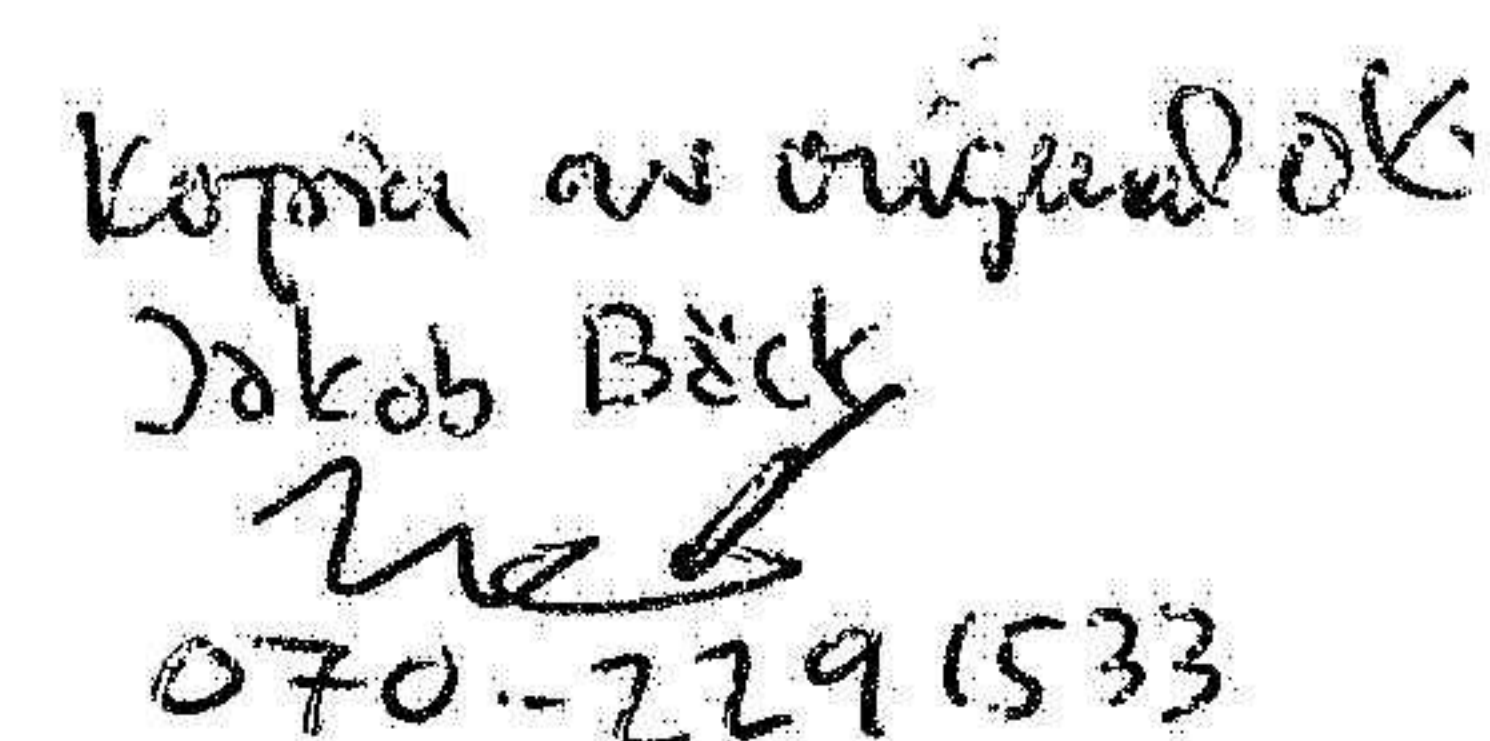 Kopia av original OK
Jakob Bäck
070-229 1533